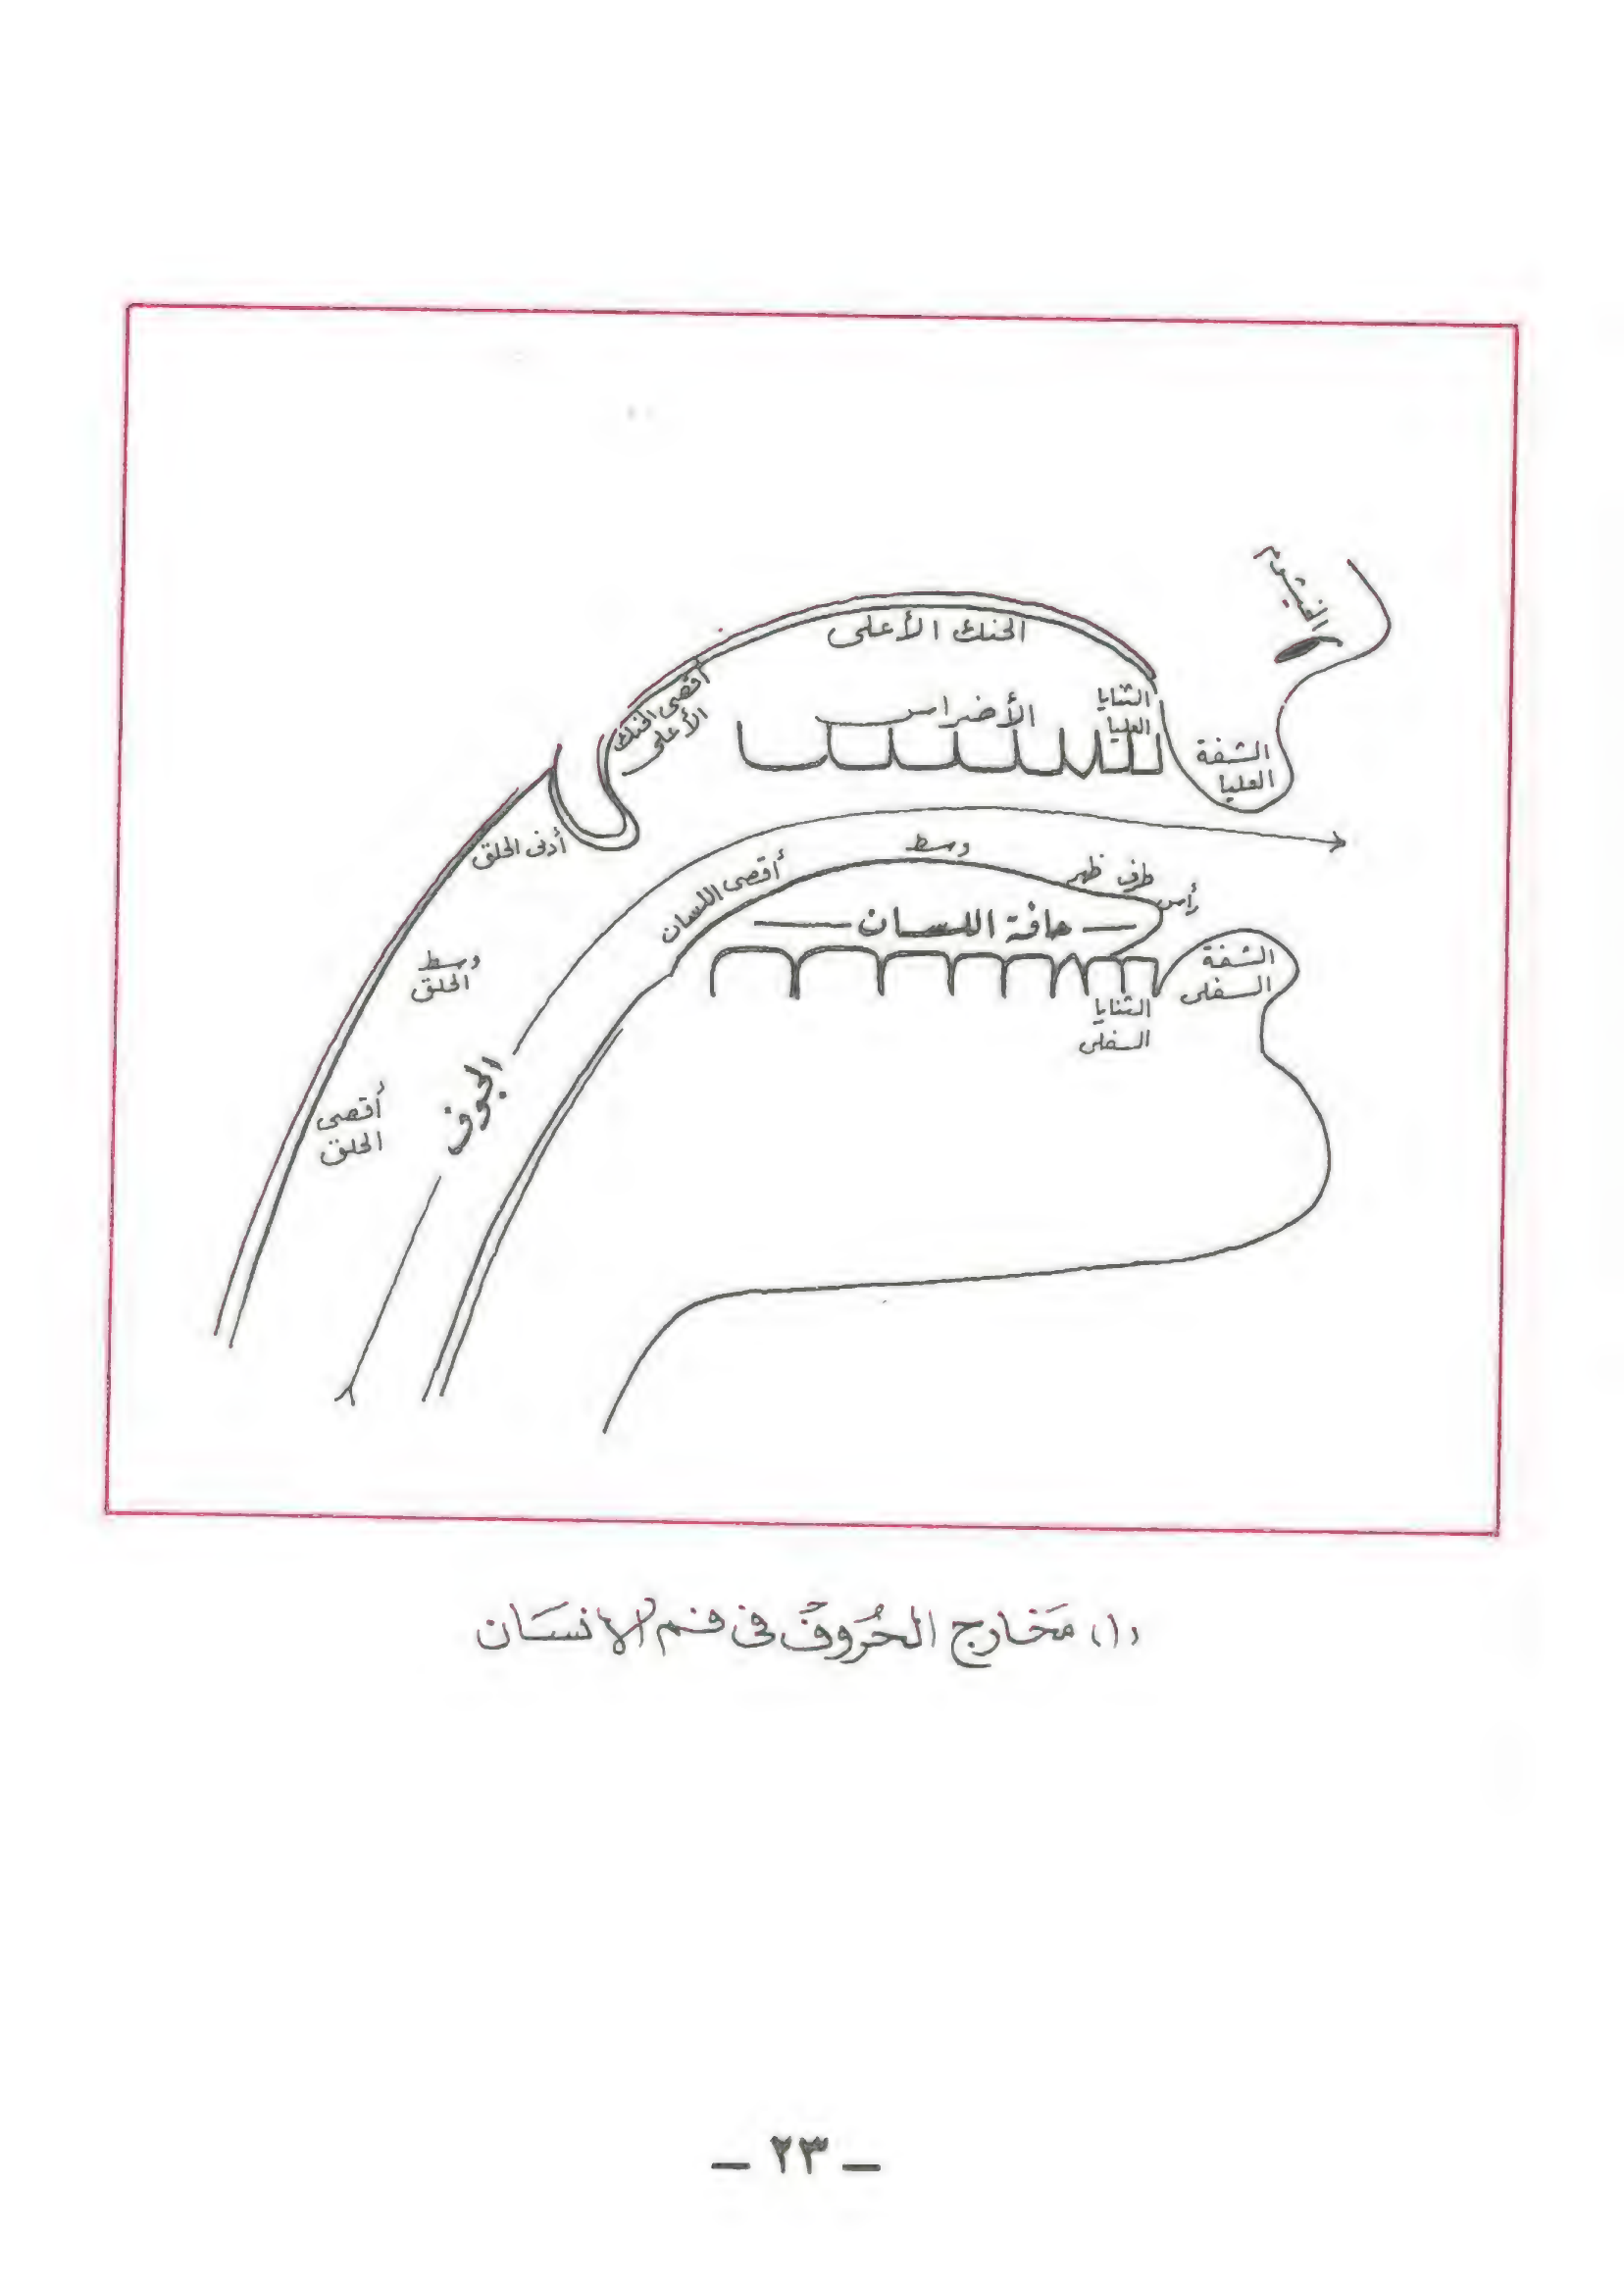 الخيشوم
الحنك الأعلى
أقصى الحنك
الأعلى
الأضراس
الثنايا
العليا
الشفة
العليا
أدنى الحلق
وسط
أقصى اللسان
طرف ظهر
رأس
حافة اللسان
الشفة
السفلى
وسط
الحلق
الثنايا
السفلى
الجوف
أقصى
الحلق
(١) مَخَارج الحُرُوف فى فم الإنسَان
- ٢٣ -